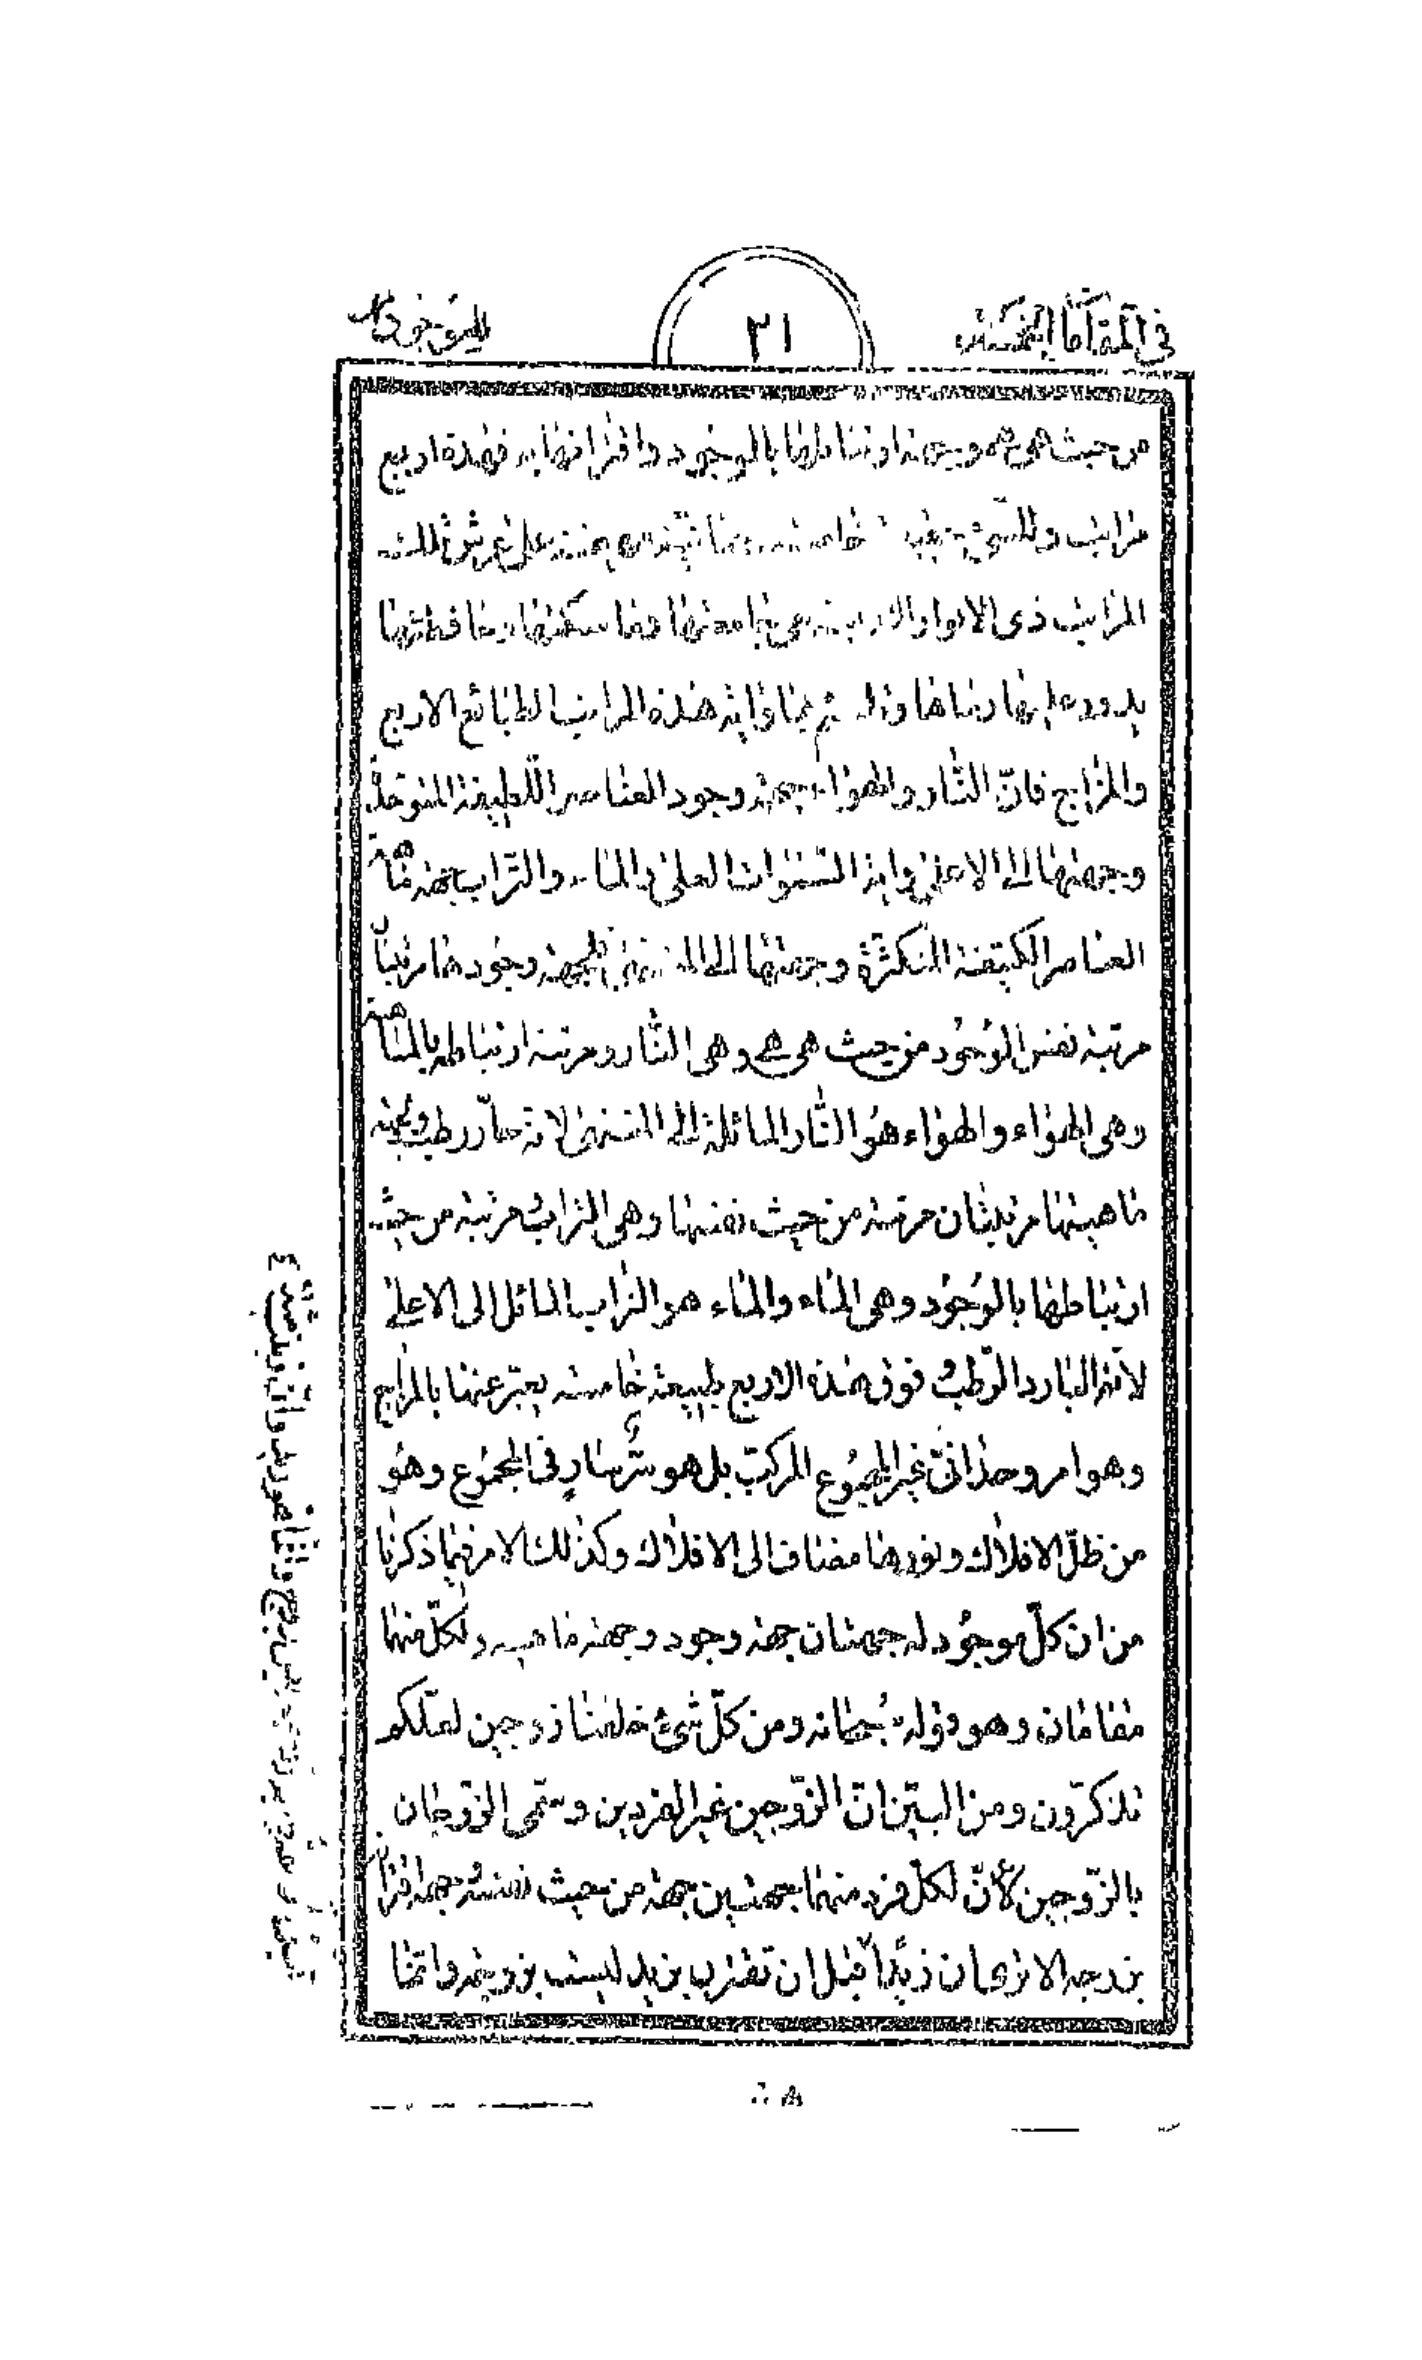 في المقامات الخمسة
للموجودات
٣١
من حيث هي هي وجهة ارتباطها بالوجود واقترانها به فهذه اربع
مراتب وللشيء خامسة على عرش تلك
المراتب ذي الانوار الاربعة هي جامعتها وماسكتها وحافظتها
يدور عليها رحاها وذلك ثم بازاء هذه المراتب الطبائع الاربع
والمزاج فانّ النّار والهواء جهة وجود العناصر اللّطيفة المتوحدة
وجهتها الى الاعلى وابذ السّموات العلى والماء والتّراب جهة ماهية
العناصر الكثيفة المتكثرة وجهتها الى المنتهى فلجهة وجودها مرتبتان
مرتبة نفس الوجود من حيث هي هي وهي النّار ومرتبة ارتباطه بالماهية
وهي الهواء والهواء هو النّار المائلة الى المنتهى لانّه حارّ رطب ولجهة
ماهيتها مرتبتان مرتبة من حيث نفسها وهي التراب ومرتبة من حيث
ارتباطها بالوجود وهي الماء والماء هو التراب المائل الى الاعلى
لانّه البارد الرّطب وفوق هذه الاربع طبيعة خامسة يعبّر عنها بالمزاج
وهو امر وحداني غير المجموع المركب بل هو سرّ سار في المجموع وهو
من ظلّ الافلاك ونورها مضاف الى الافلاك وكذلك الامر فيما ذكرنا
من ان كلّ موجود له جهتان جهة وجود وجهة ماهيه ولكلّ منهما
مقامان وهو قوله سبحانه ومن كلّ شيء خلقنا زوجين لعلّكم
تذكرّون ومن البيّن انّ الزّوجين غير الفردين وسمّى الزوجان
بالزّوجين لأنّ لكلّ فرد منهما جهتين جهة من حيث نفسه وجهة اقتران
بزوجه الا ترى ان زيداً قبل ان تقترن بزيد ليست بزوجة وانّما